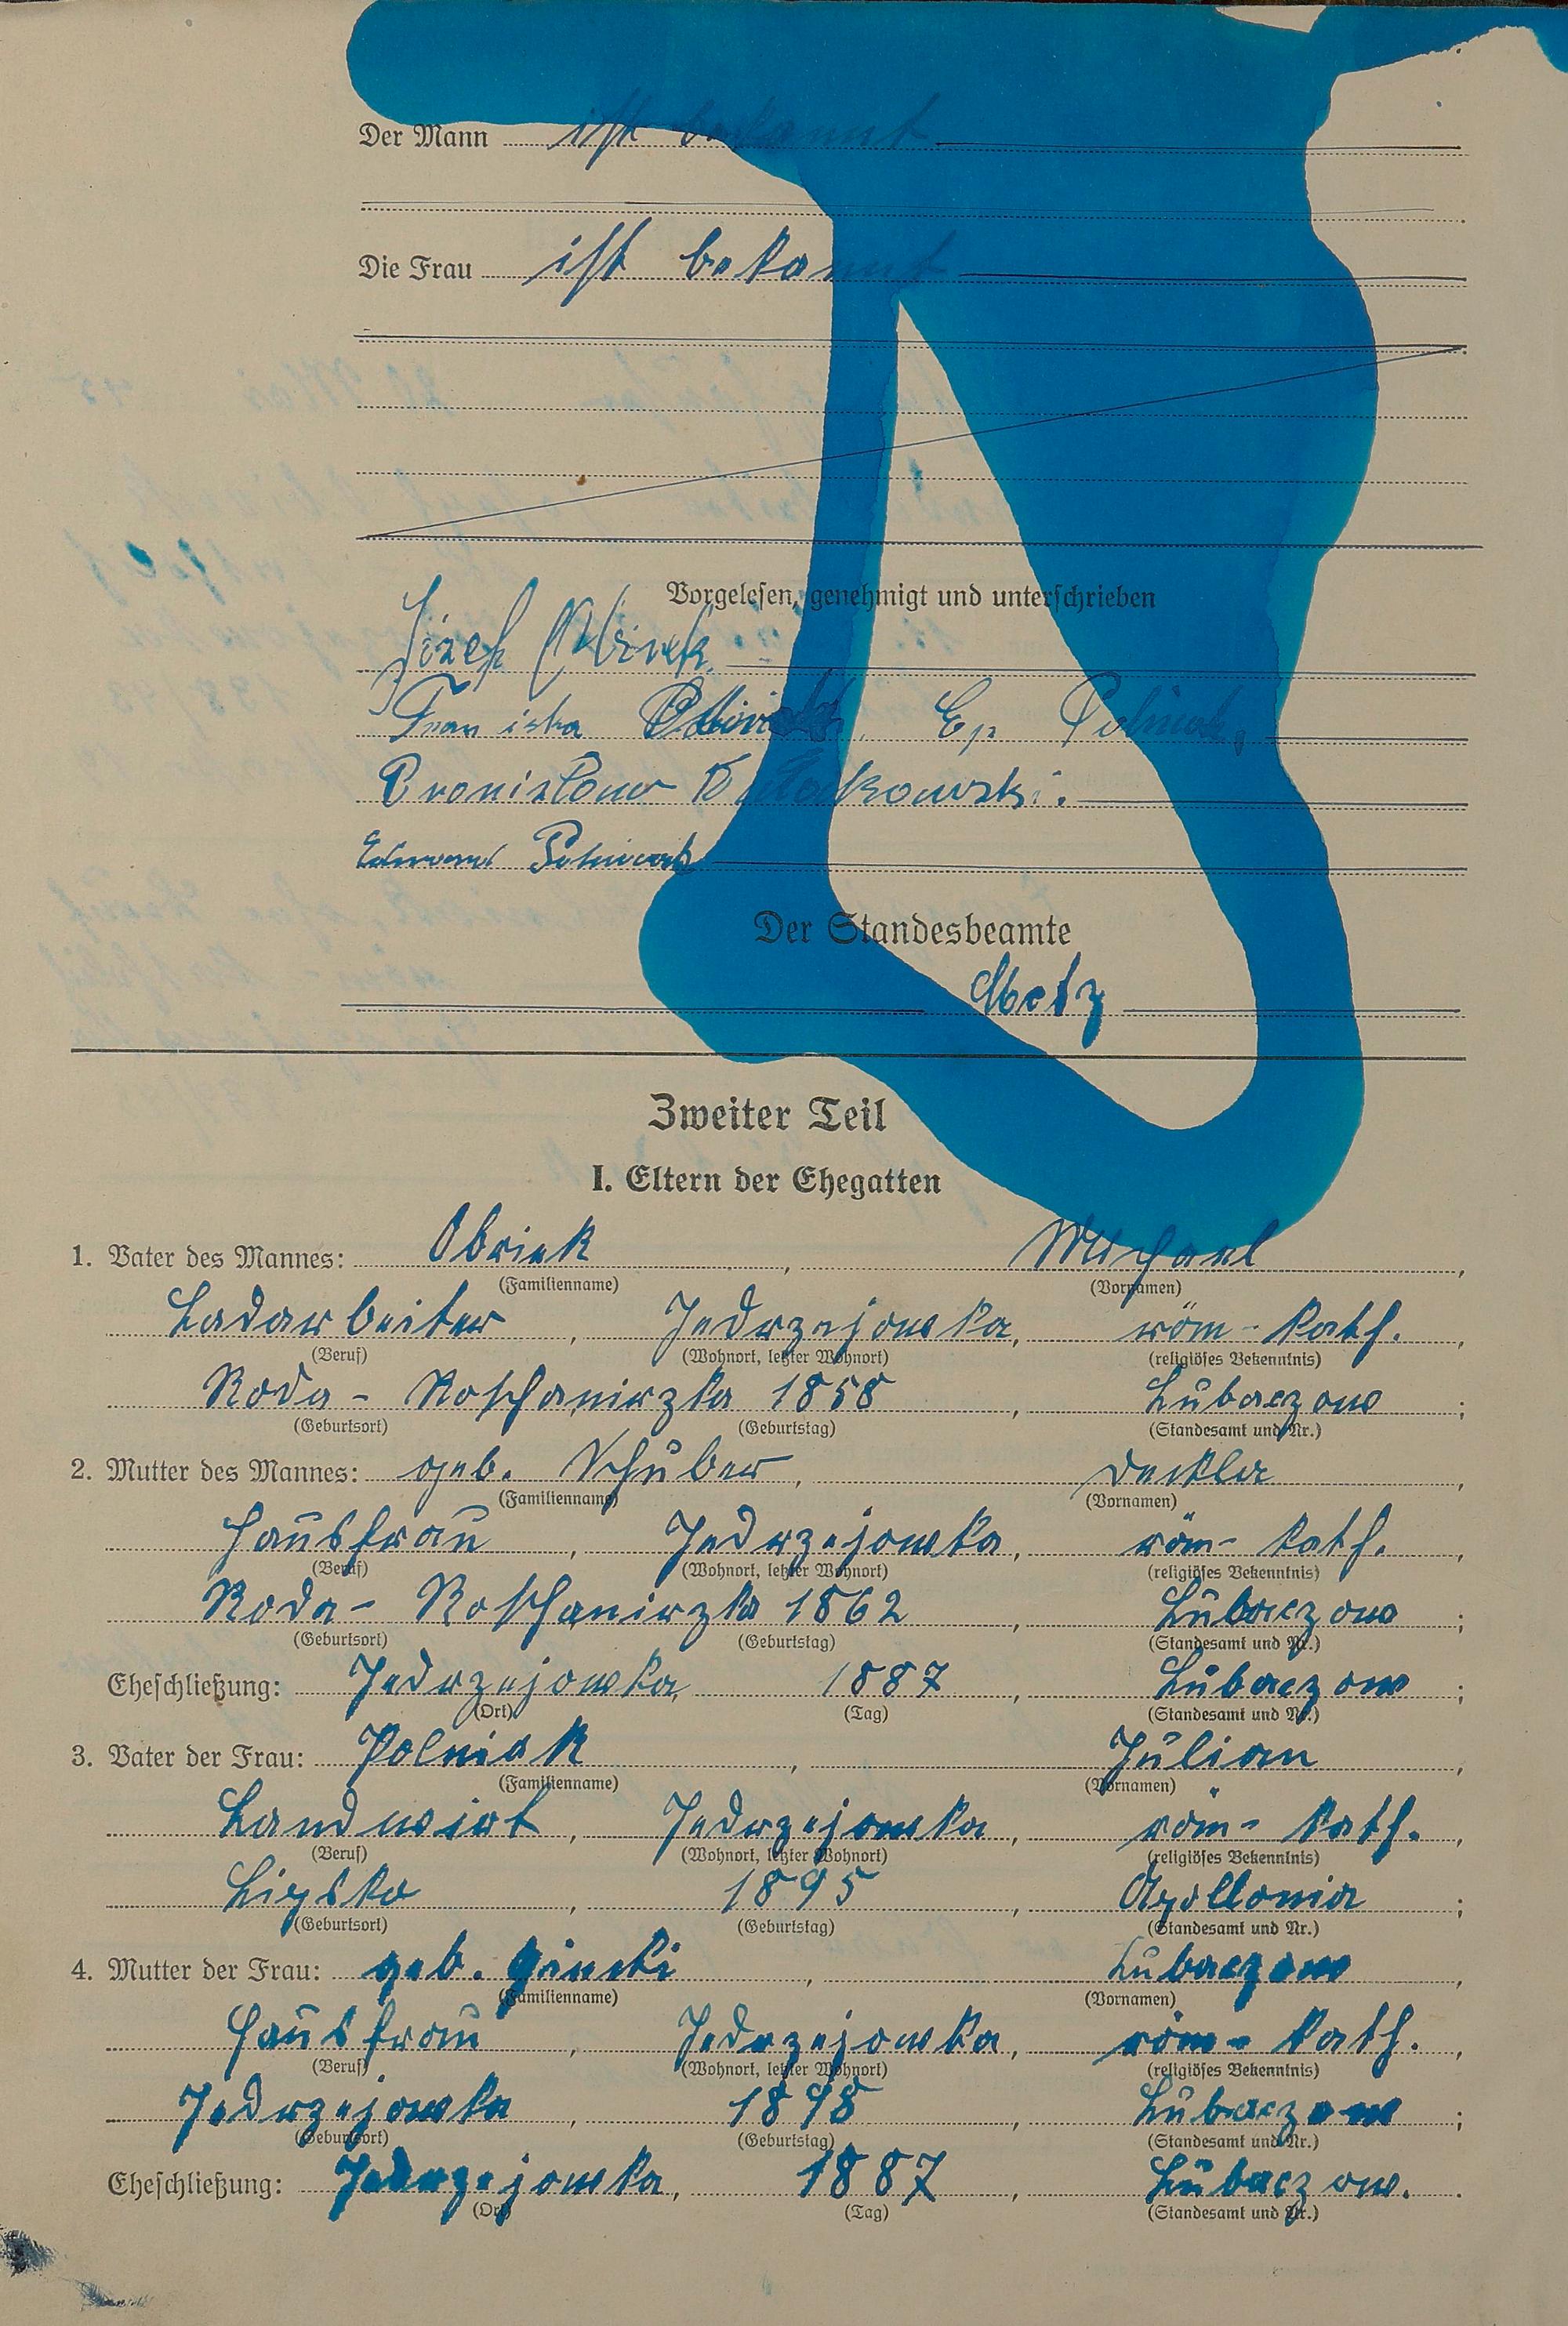 Der Mann ist bekannt
Die Frau ist bekannt
Vorgelesen, genehmigt und unterschrieben
Józef Obirek
Franciska
Bronislaw
Polniak
Der Standesbeamte
Metz
Zweiter Teil
I. Eltern der Ehegatten
1. Vater des Mannes: Obriek, Michael,
(Familienname) (Vornamen)
Ladarbeiter, Jedrzejowka, röm-kath.,
(Beruf) (Wohnort, letzter Wohnort) (religiöses Bekenntnis)
Roda- 1858, Lubaczow;
(Geburtsort) (Geburtstag) (Standesamt und Nr.)
2. Mutter des Mannes: geb. Schuber, Deckla,
(Familienname) (Vornamen)
Hausfrau, Jedrzejowka, röm-kath.,
(Beruf) (Wohnort, letzter Wohnort) (religiöses Bekenntnis)
Roda- 1862, Lubaczow;
(Geburtsort) (Geburtstag) (Standesamt und Nr.)
Eheschließung: Jedrzejowka, 1887, Lubaczow;
(Ort) (Tag) (Standesamt und Nr.)
3. Vater der Frau: Polniak, Julian,
(Familienname) (Vornamen)
Landwirt, Jedrzejowka, röm-kath.,
(Beruf) (Wohnort, letzter Wohnort) (religiöses Bekenntnis)
Lipsko, 1895, Apollonia;
(Geburtsort) (Geburtstag) (Standesamt und Nr.)
4. Mutter der Frau: geb., Lubaczow,
(Familienname) (Vornamen)
Hausfrau, Jedrzejowka, röm-kath.,
(Beruf) (Wohnort, letzter Wohnort) (religiöses Bekenntnis)
Jedrzejowka, 1898, Lubaczow;
(Geburtsort) (Geburtstag) (Standesamt und Nr.)
Eheschließung: Jedrzejowka, 1887, Lubaczow.
(Ort) (Tag) (Standesamt und Nr.)